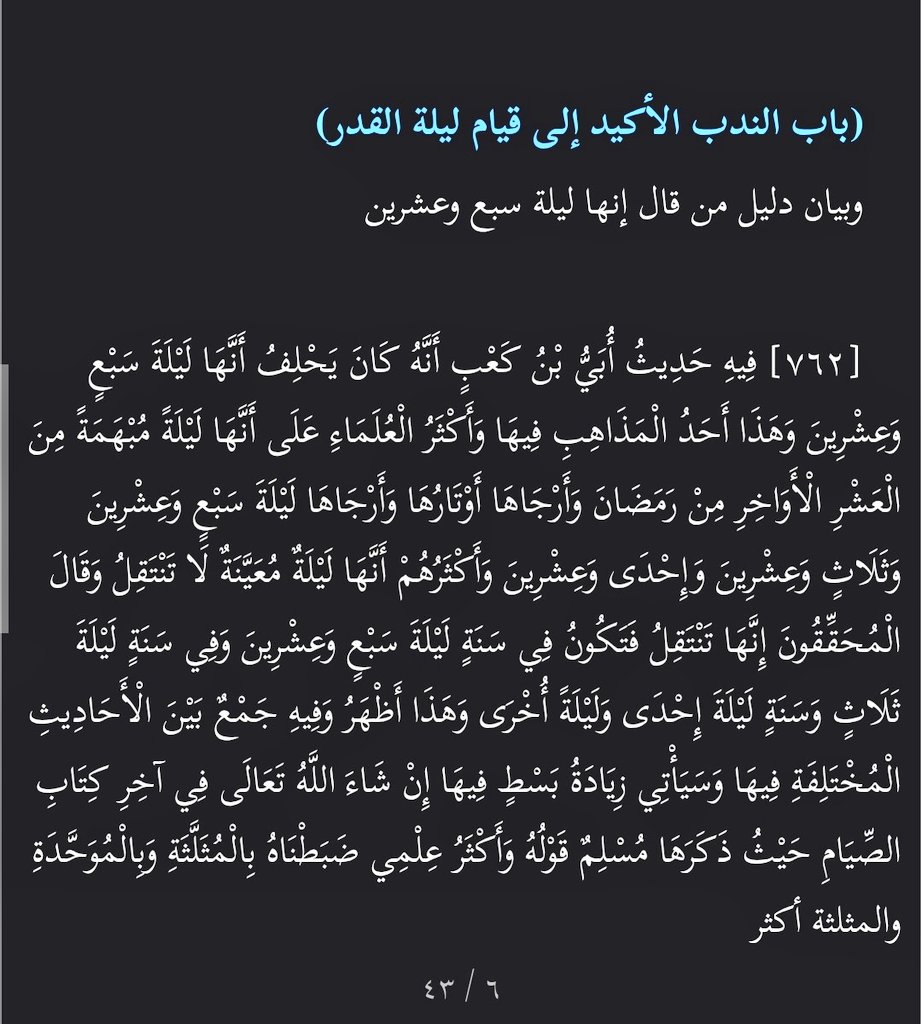 (باب الندب الأكيد إلى قيام ليلة القدر)
وبيان دليل من قال إنها ليلة سبع وعشرين
[٧٦٢] فِيهِ حَدِيثُ أُبَيُّ بْنُ كَعْبٍ أَنَّهُ كَانَ يَحْلِفُ أَنَّهَا لَيْلَةَ سَبْعٍ
وَعِشْرِينَ وَهَذَا أَحَدُ الْمَذَاهِبِ فِيهَا وَأَكْثَرُ الْعُلَمَاءِ عَلَى أَنَّهَا لَيْلَةً مُبْهَمَةً مِنَ
الْعَشْرِ الْأَوَاخِرِ مِنْ رَمَضَانَ وَأَرْجَاهَا أَوْتَارُهَا وَأَرْجَاهَا لَيْلَةَ سَبْعٍ وَعِشْرِينَ
وَثَلَاثٍ وَعِشْرِينَ وَإِحْدَى وَعِشْرِينَ وَأَكْثَرُهُمْ أَنَّهَا لَيْلَةٌ مُعَيَّنَةٌ لَا تَنْتَقِلُ وَقَالَ
الْمُحَقِّقُونَ إِنَّهَا تَنْتَقِلُ فَتَكُونُ فِي سَنَةٍ لَيْلَةَ سَبْعٍ وَعِشْرِينَ وَفِي سَنَةٍ لَيْلَةَ
ثَلَاثٍ وَسَنَةٍ لَيْلَةَ إِحْدَى وَلَيْلَةً أُخْرَى وَهَذَا أَظْهَرُ وَفِيهِ جَمْعٌ بَيْنَ الْأَحَادِيثِ
الْمُخْتَلِفَةِ فِيهَا وَسَيَأْتِي زِيَادَةُ بَسْطٍ فِيهَا إِنْ شَاءَ اللَّهُ تَعَالَى فِي آخِرِ كِتَابِ
الصِّيَامِ حَيْثُ ذَكَرَهَا مُسْلِمٌ قَوْلُهُ وَأَكْثَرُ عِلْمِي ضَبَطْنَاهُ بِالْمُثَلَّثَةِ وَبِالْمُوَحَّدَةِ
والمثلثة أكثر
٦ / ٤٣